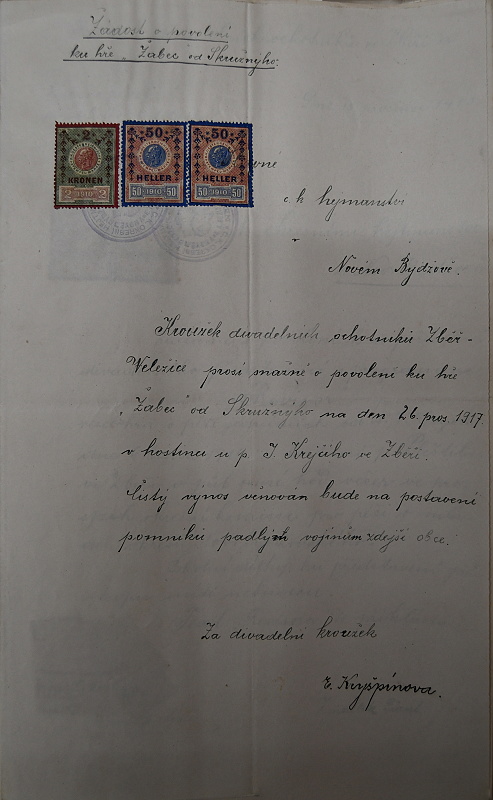 Žádost o povolení
ku hře „Žabec" od Skružnýho.
2
KRONEN
2 1910 2
50
HELLER
50 1910 50
50
HELLER
50 1910 50
c. k. hejmanství
v
Novém Bydžově.
Kroužek divadelních ochotníků Zběř-
Veležice prosí snažně o povolení ku hře
„Žabec" od Skružnýho na den 26. pros. 1917.
v hostinci u p. J. Krejčího ve Zběři.
Čistý výnos věnován bude na postavení
pomníků padlých vojínům zdejší obce.
Za divadelní kroužek